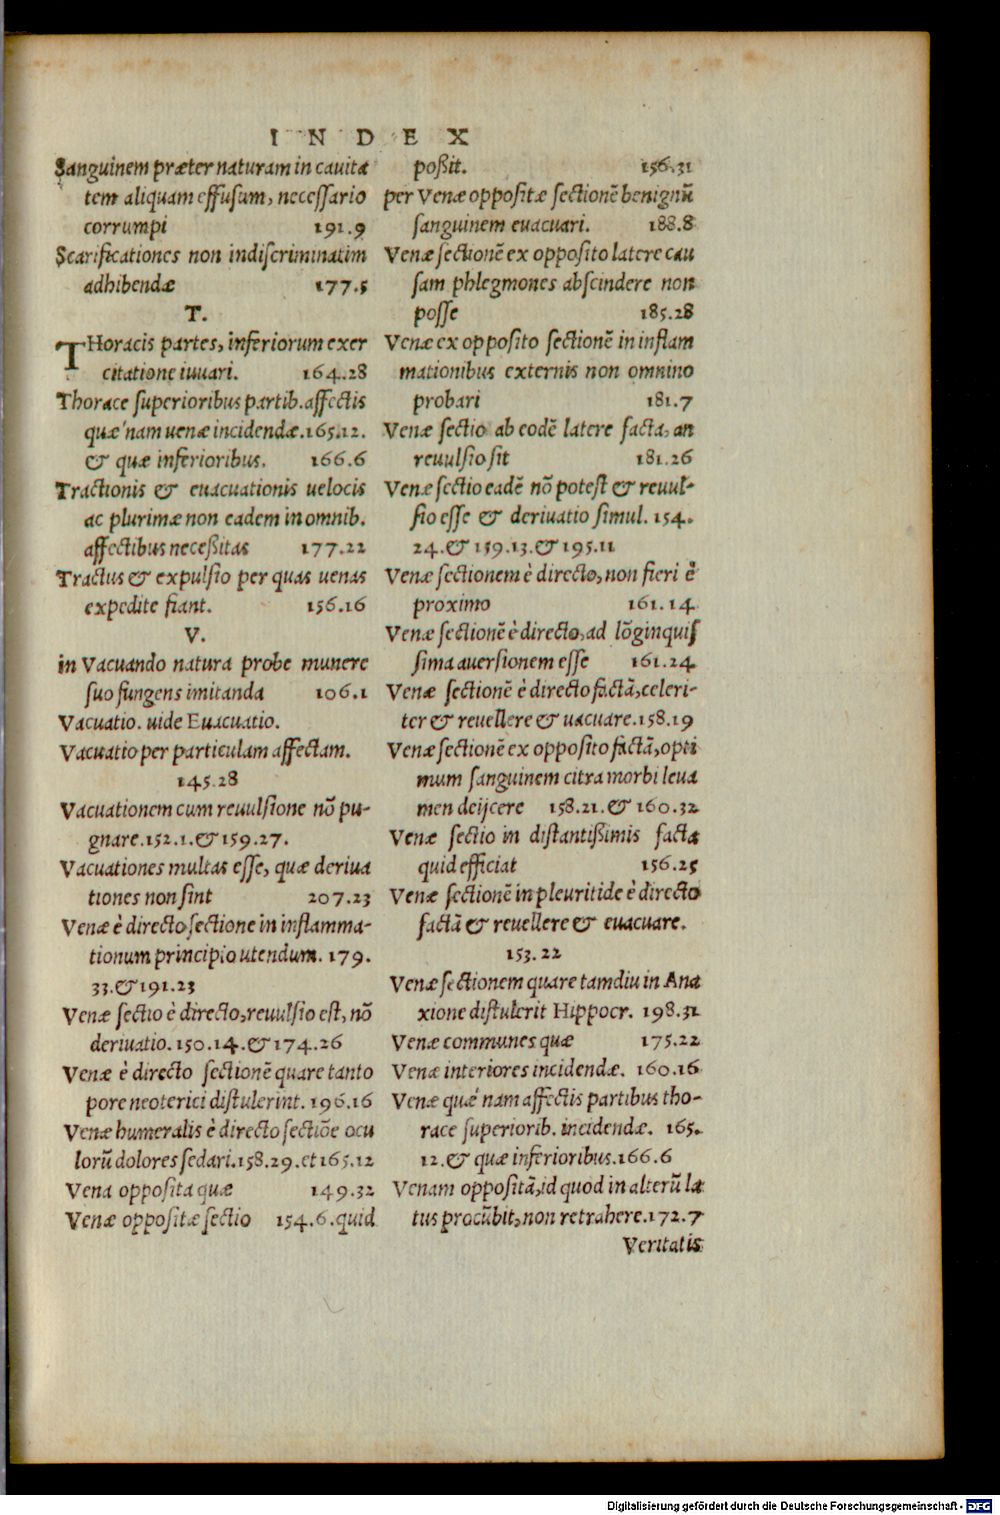 INDEX
Sanguinem præter naturam in cauita
tem aliquam effusum, necessario
corrumpi 191.9
Scarificationes non indiscriminatim
adhibendæ 177.5
T.
THoracis partes, inferiorum exer
citatione iuuari. 164.28
Thorace superioribus partib. affectis
quæ nam uenæ incidendæ. 165.12.
& quæ inferioribus. 166.6
Tractionis & euacuationis uelocis
ac plurimæ non eadem in omnib.
affectibus neceßitas 177.22
Tractus & expulsio per quas uenas
expedite fiant. 156.16
V.
in Vacuando natura probe munere
suo fungens imitanda 106.1
Vacuatio. uide Euacuatio.
Vacuatio per particulam affectam.
145.28
Vacuationem cum reuulsione nõ pu-
gnare. 152.1. & 159.27.
Vacuationes multas esse, quæ deriua
tiones non sint 207.23
Venæ è directo sectione in inflamma-
tionum principio utendum. 179.
33. & 191.23
Venæ sectio è directo, reuulsio est, nõ
deriuatio. 150.14. & 174.26
Venæ è directo sectionẽ quare tanto
pore neoterici distulerint. 196.16
Venæ humeralis è directo sectiõe ocu
lorũ dolores sedari. 158.29. et 165.12
Vena opposita quæ 149.32
Venæ oppositæ sectio 154.6. quid
poßit. 156.31
per Venæ oppositæ sectionẽ benignũ
sanguinem euacuari. 188.8
Venæ sectionẽ ex opposito latere cau
sam phlegmones abscindere non
posse 185.28
Venæ ex opposito sectionẽ in inflam
mationibus externis non omnino
probari 181.7
Venæ sectio ab eodẽ latere facta, an
reuulsio sit 181.26
Venæ sectio eadẽ nõ potest & reuul-
sio esse & deriuatio simul. 154.
24. & 159.13. & 195.11
Venæ sectionem è directo, non fieri è
proximo 161.14
Venæ sectionẽ è directo, ad lõginquis
sima auersionem esse 161.24
Venæ sectionẽ è directo factã, celeri-
ter & reuellere & uacuare. 158.19
Venæ sectionẽ ex opposito factã, opti
mum sanguinem citra morbi leua
men deijcere 158.21. & 160.32
Venæ sectio in distantißimis facta
quid efficiat 156.25
Venæ sectionẽ in pleuritide è directo
factã & reuellere & euacuare.
153.22
Venæ sectionem quare tamdiu in Ana
xione distulerit Hippocr. 198.31
Venæ communes quæ 175.22
Venæ interiores incidendæ. 160.16
Venæ quæ nam affectis partibus tho-
race superiorib. incidendæ. 165.
12. & quæ inferioribus. 166.6
Venam oppositã, id quod in alterũ la
tus procũbit, non retrahere. 172.7
Veritatis
Digitalisierung gefördert durch die Deutsche Forschungsgemeinschaft - DFG